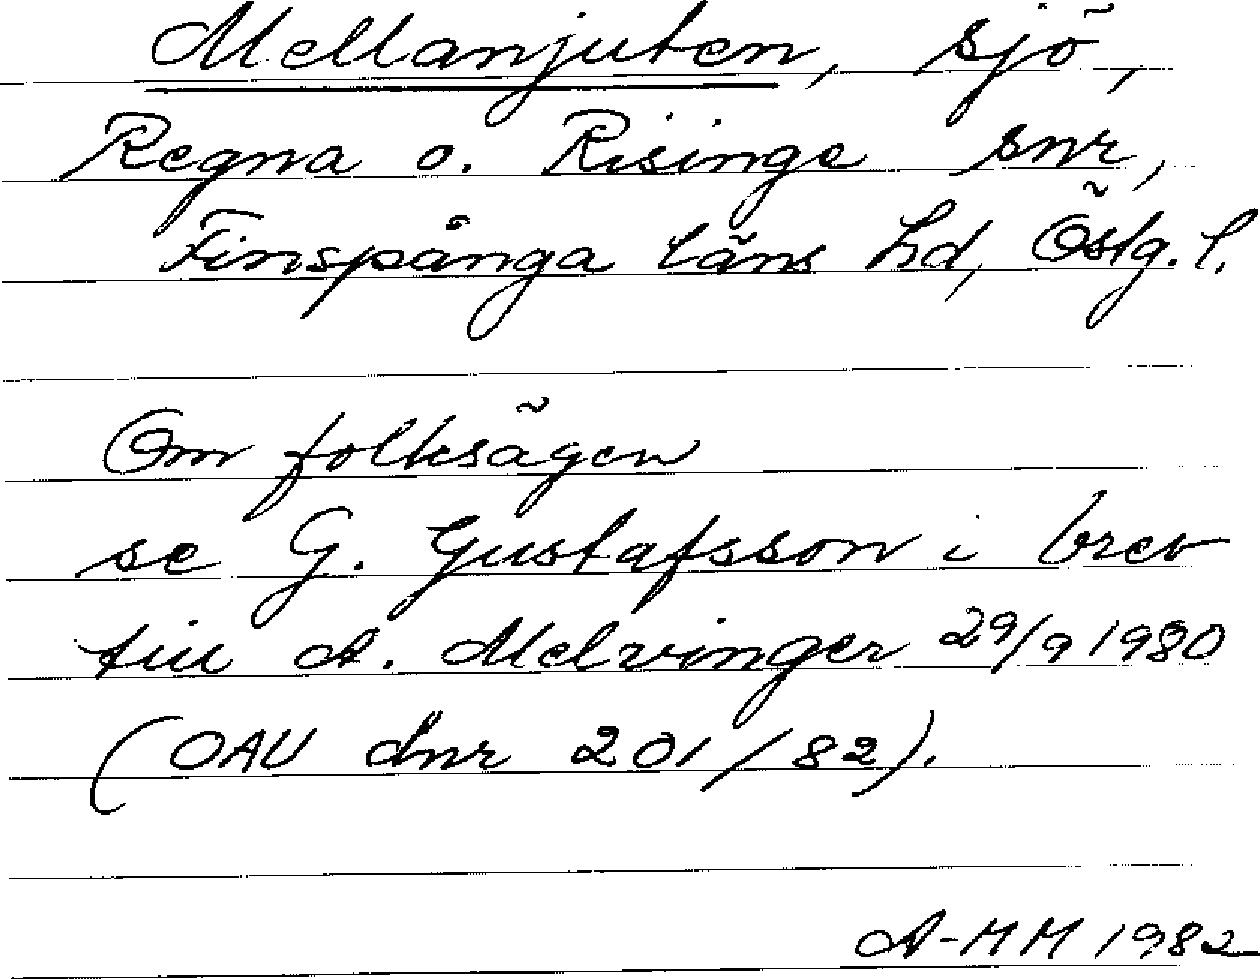 Mellanjuten, sjö,
Regna o. Risinge snr,
Finspånga läns hd, Östg. l.
Om folksägen
se G. Gustafsson i brev
till A. Melvinger 29/9 1980
(OAU dnr 201/82).
A-MM 1982